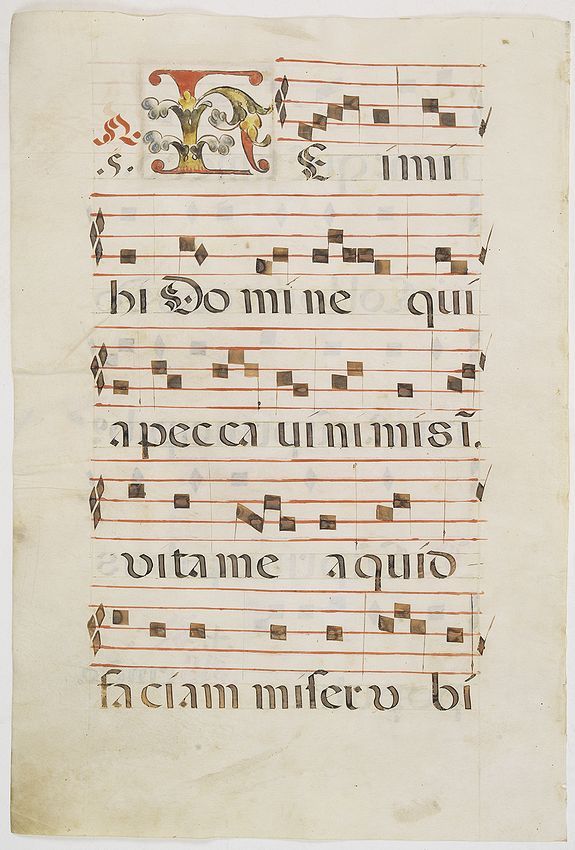 R.
.5.
HE imi
hi Domine qui
a peccaui nimis ĩ.
vita me a quid
faciam miser v bi